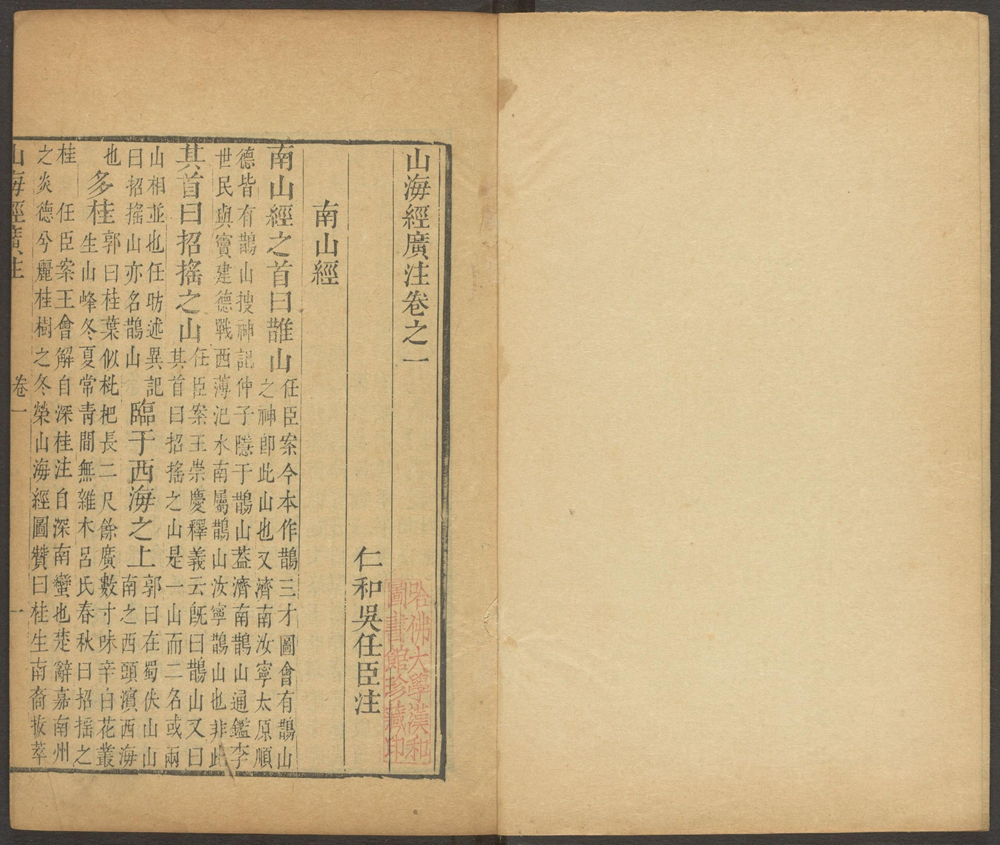 山海經廣注卷之一
仁和吳任臣注
哈佛大學漢和
圖書館珍藏印
南山經
南山經之首曰䧿山
任臣案今本作鵲三才圖會有鵲山
之神即此山也又濟南汝寧太原順
德皆有鵲山搜神記仲子隱于鵲山葢濟南鵲山通鑑李
世民與竇建德戰西薄汜水南屬鵲山汝寧鵲山也非此
其首曰招搖之山
任臣案王崇慶釋義云旣曰鵲山又曰
其首曰招搖之山是一山而二名或兩
山相並也任昉述異記
曰招搖山亦名鵲山
臨于西海之上
郭曰在蜀伏山山
南之西頭濱西海
也
多桂
郭曰桂葉似枇杷長二尺餘廣數寸味辛白花叢
生山峰冬夏常青間無雜木呂氏春秋曰招搖之
桂 任臣案王會解自深桂注自深南蠻也楚辭嘉南州
之炎德兮麗桂樹之冬榮山海經圖贊曰桂生南裔拔萃
山海經廣注 卷一 一